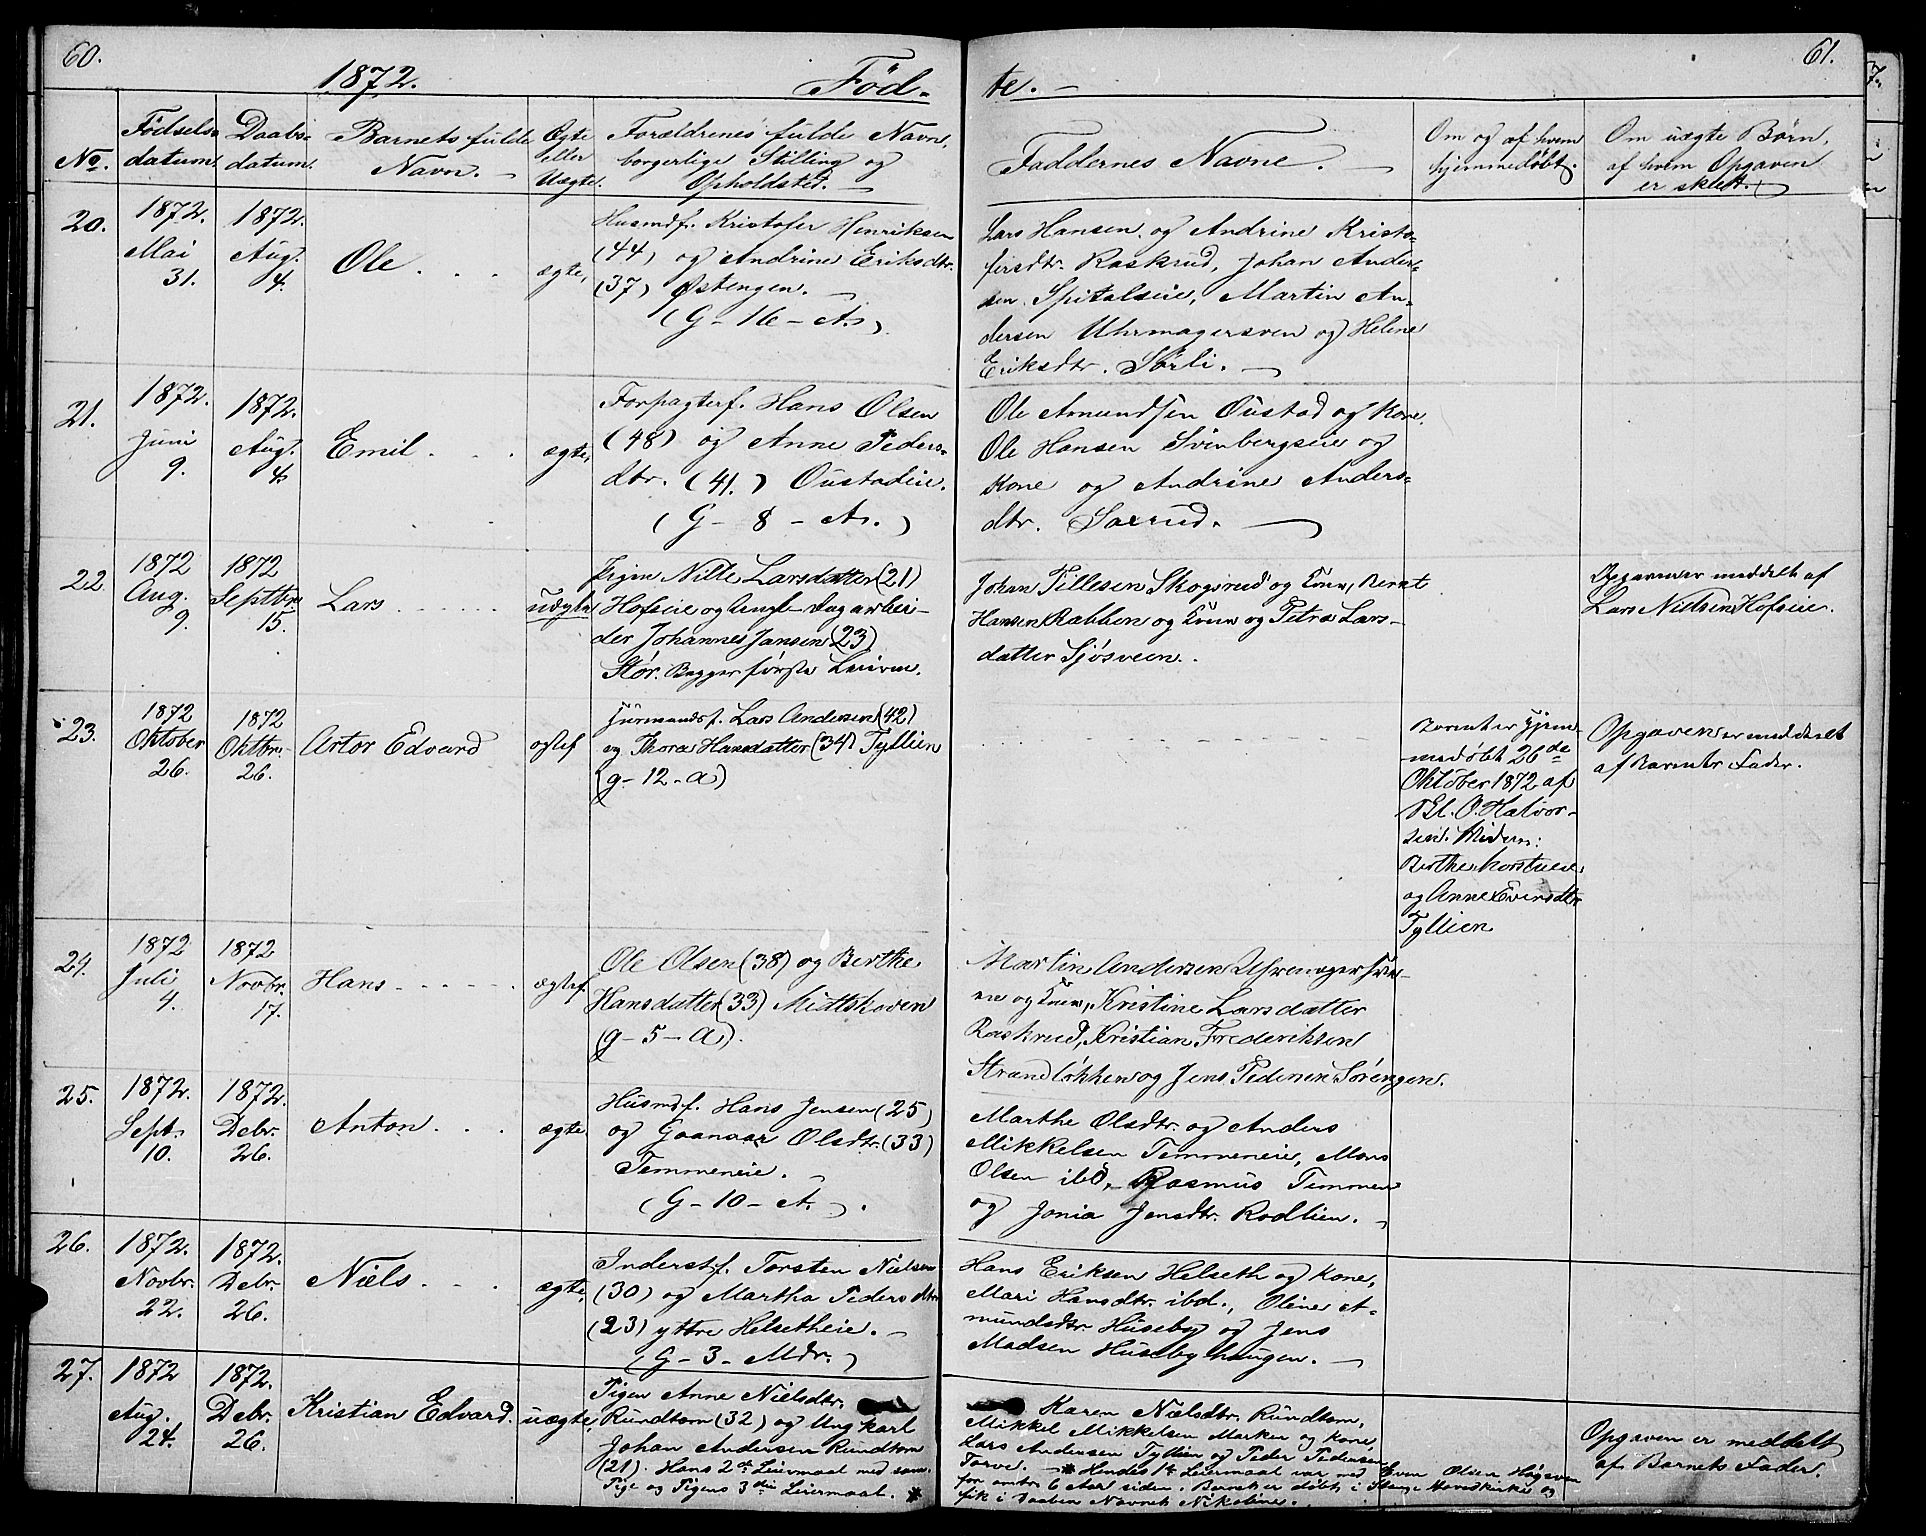 60.
1872.
Fød-
te.
61.
No.
Fødsels-
datum.
Daabs-
datum.
Barnets fulde
Navn.
Ægte
eller
Uægte.
Forældrenes fulde Navn,
borgerlige Stilling og
Opholdsted.
Faddernes Navne.
Om og af hvem
hjemmedøbt.
Om uægte Børn,
af hvem Opgaven
er skeet.
20.
1872.
Mai
31.
1872.
Aug.
4.
Ole
ægte,
Husmdf. Kristofer Henriksen
(44) og Andrine Eriksdtr.
(37) Østengen.
(G - 16 - A.)
Lars Hansen og Andrine Kristo-
fersdtr. Raskrud, Johan Ander-
sen Spitalseie, Martin An-
dersen Uhrmagersven og Helene
Eriksdtr. Sørli.
21.
1872.
Juni
9.
1872.
Aug.
4.
Emil
ægte,
Forpagterf. Hans Olsen
(48) og Anne Peders-
dtr. (41.) Oustadeie.
(G - 8 - A.)
Ole Amundsen Oustad og Kone,
Ole Hansen Svinbergseie og
Kone og Andrine Anders-
dtr. Saxrud.
22
1872
Aug.
9.
1872
Septbr.
15.
Lars
uægte
Pigen Nille Larsdatter (21)
Hofseie og Ungk. Dagarbei-
der Johannes Jansen (23)
Stór. Begges første Leierm.
Johan Tillesen Skogsrud og Kone, Bernt
Hansen Rabben og Kone og Petra Lars-
datter Sjøsveen.
Opgaven er meddelt af
Lars Nielsen Hofseie.
23.
1872
Oktober
26.
1872
Oktbr.
26.
Artor Edvard
ægtef
Husmandsf. Lars Andersen (42)
og Thora Hansdatter (34) Tyllien
(g - 12 - a)
Barnet er hjem-
medøbt 26de
Oktober 1872 af
Kl. O. Halvor-
sen. Vidner:
Berthe Korstueie
og Anne Evensdtr
Tyllien
Opgaven er meddeelt
af Barnets Fader.
24.
1872
Juli
4.
1872
Novbr.
17.
Hans
ægtef.
Ole Olsen (38) og Berthe
Hansdatter (33) Midtskoven
(g - 5 - a).
Martin Andersen Uhrmagersve-
en og Kone, Kristine Larsdatter
Raskrud, Kristian Frederiksen
Strandløkken og Jens Pedersen Sørengen.
25.
1872.
Sept.
10.
1872.
Debr.
26.
Anton
ægte
Husmdf. Hans Jensen (25)
og Gunnor Olsdtr. (33)
Temmeneie.
(G - 10 - A.)
Marthe Olsdtr. og Anders
Mikkelsen Temmeneie, Mons
Olsen ibd, Rasmus Temmen
og Jonia Jensdtr. Rodlien.
26.
1872.
Novbr.
22.
1872.
Debr.
26.
Niels
ægte,
Inderstf. Torsten Nielsen
(30) og Martha Pedersdtr.
(23) yttre Helsetheie.
(G - 3 - Mdr.)
Hans Eriksen Helseth og Kone,
Mari Hansdtr. ibd., Oline A-
mundsdtr. Huseby og Jens
Madsen Husebyhaugen.
27.
1872
Aug.
24.
1872.
Debr.
26.
Kristian Edvard.
uægte,
Pigen Anne Nielsdtr.
Rundtom (32) og Ungkarl
Johan Andersen Rundtom
(21). Hans 2det Leiermaal med sam.
Pige og Pigens 3die Leiermaal. *
Karen Nielsdtr. Rundtom,
Mikkel Mikkelsen Marken og Kone,
Lars Andersen Tyllien og Peder Pedersen
Torve. * Hendes 1te Leiermaal var med Even Olsen Høgaven
for omtr. 6 Aar siden. Barnet er døbt i Stange Hovedkirke og
fik i Daaben Navnet Nikoline.
Opgaven er meddelt
af Barnets Fader.